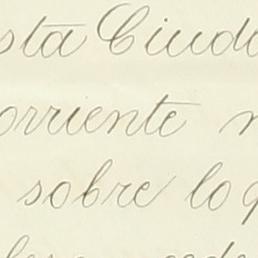 sta Ciuda
orriente n
sobre lo q